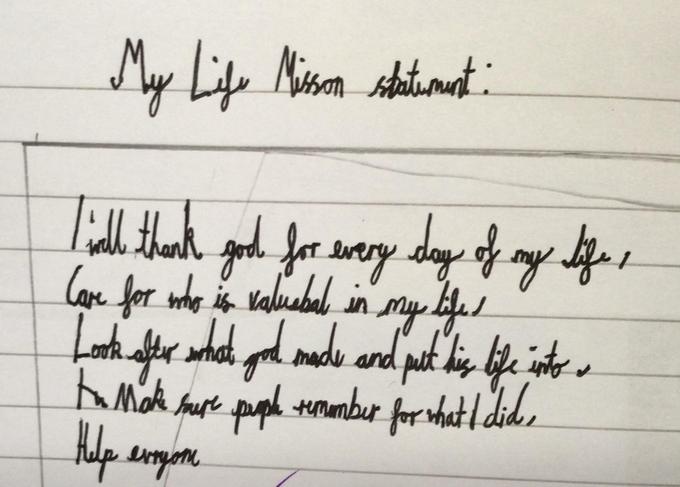 My Life Misson statement:
I will thank god for every day of my life,
Care for who is valuebal in my life,
Look after what god made and put his life into,
Make sure people remember for what I did,
Help evryone